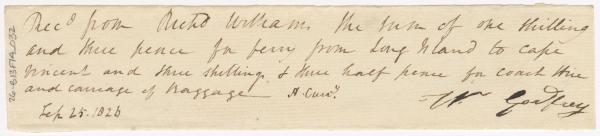 Recd from Richd Williams the sum of one shilling
and three pence for ferry from Long Island to cape
vincent and three shillings & three half pence for coach hire
and carriage of Baggage H. Curcy.
Wm Godfrey
Sep 25. 1826
26-613F14.032